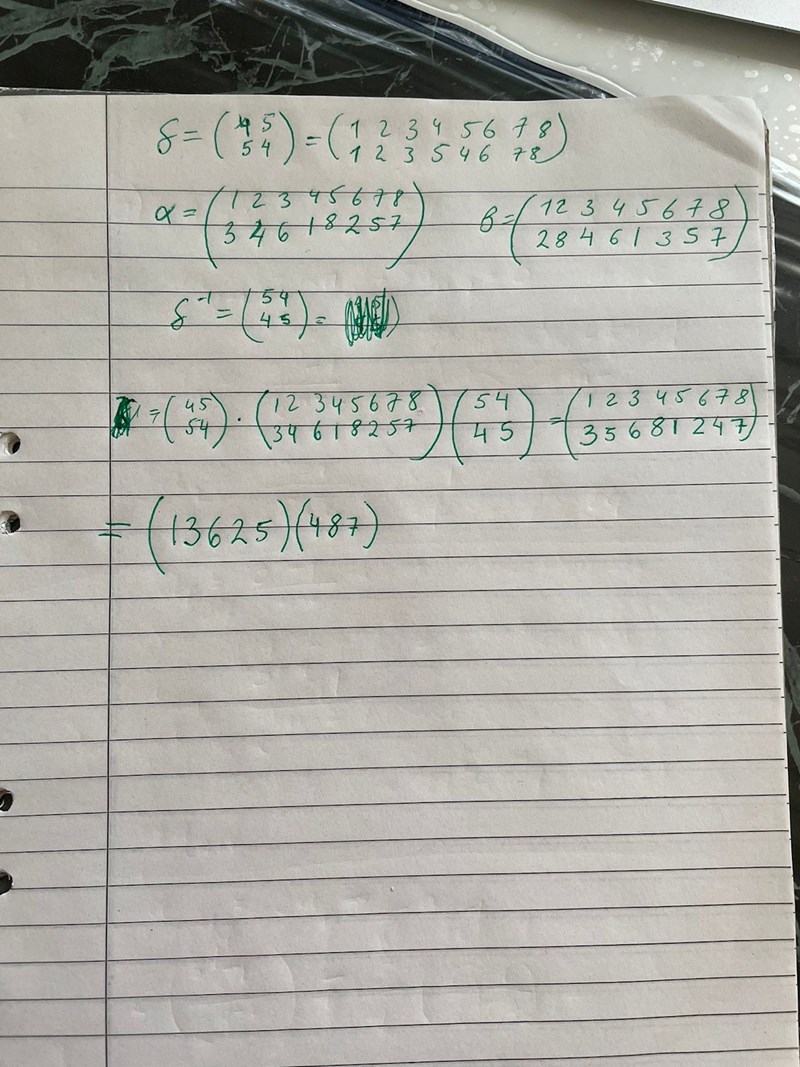 δ = (4 5 / 5 4) = (1 2 3 4 5 6 7 8 / 1 2 3 5 4 6 7 8)
α = (1 2 3 4 5 6 7 8 / 3 4 6 1 8 2 5 7) β = (1 2 3 4 5 6 7 8 / 2 8 4 6 1 3 5 7)
δ⁻¹ = (5 4 / 4 5) =
= (4 5 / 5 4) · (1 2 3 4 5 6 7 8 / 3 4 6 1 8 2 5 7) (5 4 / 4 5) = (1 2 3 4 5 6 7 8 / 3 5 6 8 1 2 4 7)
= (1 3 6 2 5)(4 8 7)